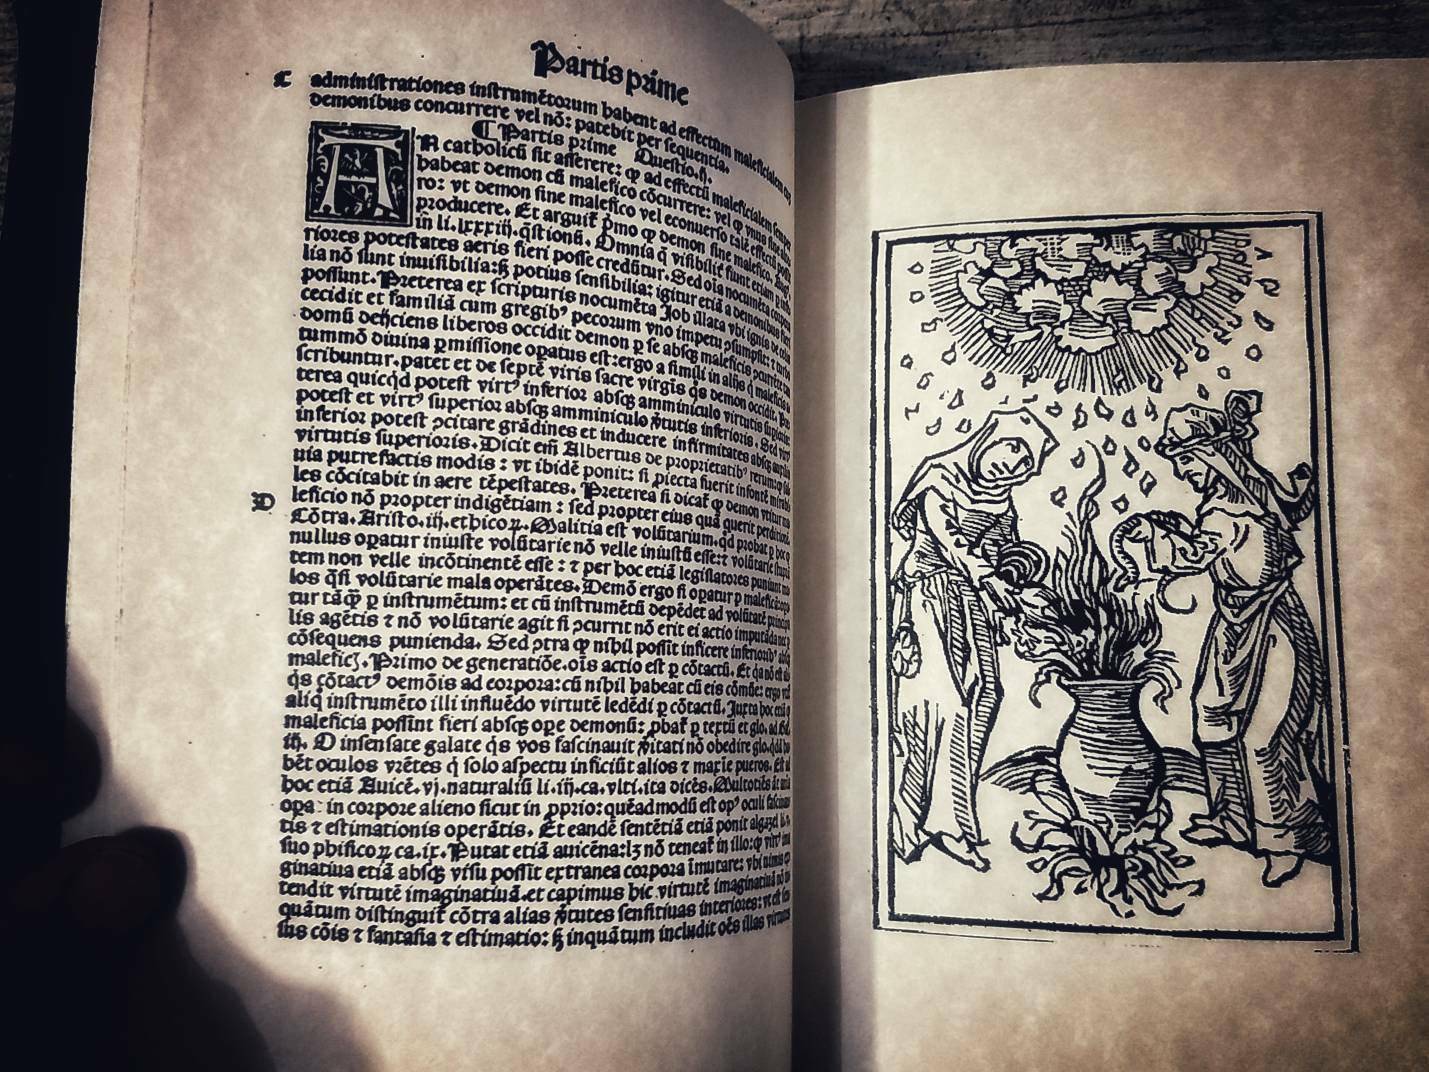 Partis prime
C administrationes instrumētorum habent ad effectum maleficialem cum
demonibus concurrere vel nō: patebit per sequentia.
¶ Partis prime Questio.ij.
AN catholicū sit asserere: ꝙ ad effectū maleficialem semper
habeat demon cū malefico cōcurrere: vel ꝙ vnus sine
ro: vt demon sine malefico vel econuerso talē effectū possit
producere. Et arguit᷑ p̄mo ꝙ demon sine malefico.
in li.lxxxiij.q̄stionū. Omnia q̄ visibilit᷑ fiunt etiam ꝑ
riores potestates aeris fieri posse credūtur. Sed oīa nocumēta
lia nō sunt inuisibilia:sꝫ potius sensibilia: igitur etiā a demonibus fieri
possunt. Preterea ex scripturis nocumēta Job illata vbi ignis de celo
cecidit et familiā cum gregibꝰ pecorum vno impetu ↄsumpsit: ⁊ turbo
domū deijciens liberos occidit demon ꝑ se absqꝫ maleficis ↄcurrēte
tummō diuina ꝑmissione oꝑatus est:ergo a simili in alijs q̄ maleficis
scribuntur.patet et de septē viris sacre virgīs q̄s demon occidit. Pre
terea quicq̄d potest virtꝰ inferior absqꝫ amminiculo virtutis superioris
potest et virtꝰ superior absqꝫ amminiculo v̄tutis inferioris. Sed virtꝰ
inferior potest ↄcitare grādines et inducere infirmitates absqꝫ
virtutis superioris. Dicit em̄ Albertus de proprietatibꝰ rerum:ꝙ
uia putrefactis modis: vt ibidē ponit: si ꝓiecta fuerit in fontē
les cōcitabit in aere tēpestates. Preterea si dicat᷑ ꝙ demon vtitur ma
D leficio nō propter indigētiam: sed propter eius quā querit perditionē.
Cōtra. Aristo.iij.ethicoꝝ. Malitia est volūtarium.qd̄ probat ꝑ hoc ꝙ
nullus oꝑatur iniuste volūtarie nō velle iniustū esse:⁊ volūtarie
tem non velle incōtinentē esse: ⁊ per hoc etiā legislatores puniunt ma
los q̄si volūtarie mala operātes. Demō ergo si oꝑatur ꝑ
tur tāꝙ̄ ꝑ instrumētum: et cū instrumētū depēdet ad volūtatē
lis agētis ⁊ nō volūtarie agit si ↄcurrit nō erit ei actio imputāda nec ꝑ
cōsequens punienda. Sed ↄtra ꝙ nihil possit inficere inferioribꝰ absqꝫ
maleficꝫ. Primo de generatiōe.oīs actio est ꝑ cōtactū. Et
q̄s cōtactꝰ demōis ad corpora:cū nihil habeat cū eis cōmūe: ergo
aliq̄ instrumēto illi influēdo virtutē ledēdi ꝑ cōtactū. Juxta hoc etiā ꝙ
maleficia possint fieri absqꝫ oꝑe demonū: ꝓbat᷑ ꝑ textū et glo. ad
iij. O insensate galate q̄s vos fascinauit v̄itati nō obedire glo.
bēt oculos vrētes q̄ solo aspectu inficiūt alios ⁊ maxīe pueros. Est ad
hoc etiā Auicē.vj.naturaliū li.iiij.ca.vlti.ita dicēs. Multotiēs
opa in corpore alieno sicut in ꝓprio: quēadmodū est opꝰ oculi fascinan
tis ⁊ estimationis operātis. Et eandē sentētiā etiā ponit algazel li.
suo phisicoꝝ ca.ix. Putat etiā auicēna:lꝫ nō teneat᷑ in illo:ꝙ virtꝰ ima
ginatiua etiā absqꝫ visu possit extranea corpora īmutare:
tendit virtutē imaginatiuā.et capimus hic virtutē imaginatiuā nō
quātum distinguit᷑ cōtra alias v̄tutes sensitiuas interiores: vt est sen
sus cōis ⁊ fantasia ⁊ estimatio: sꝫ inquātum includit oēs illas virtutes